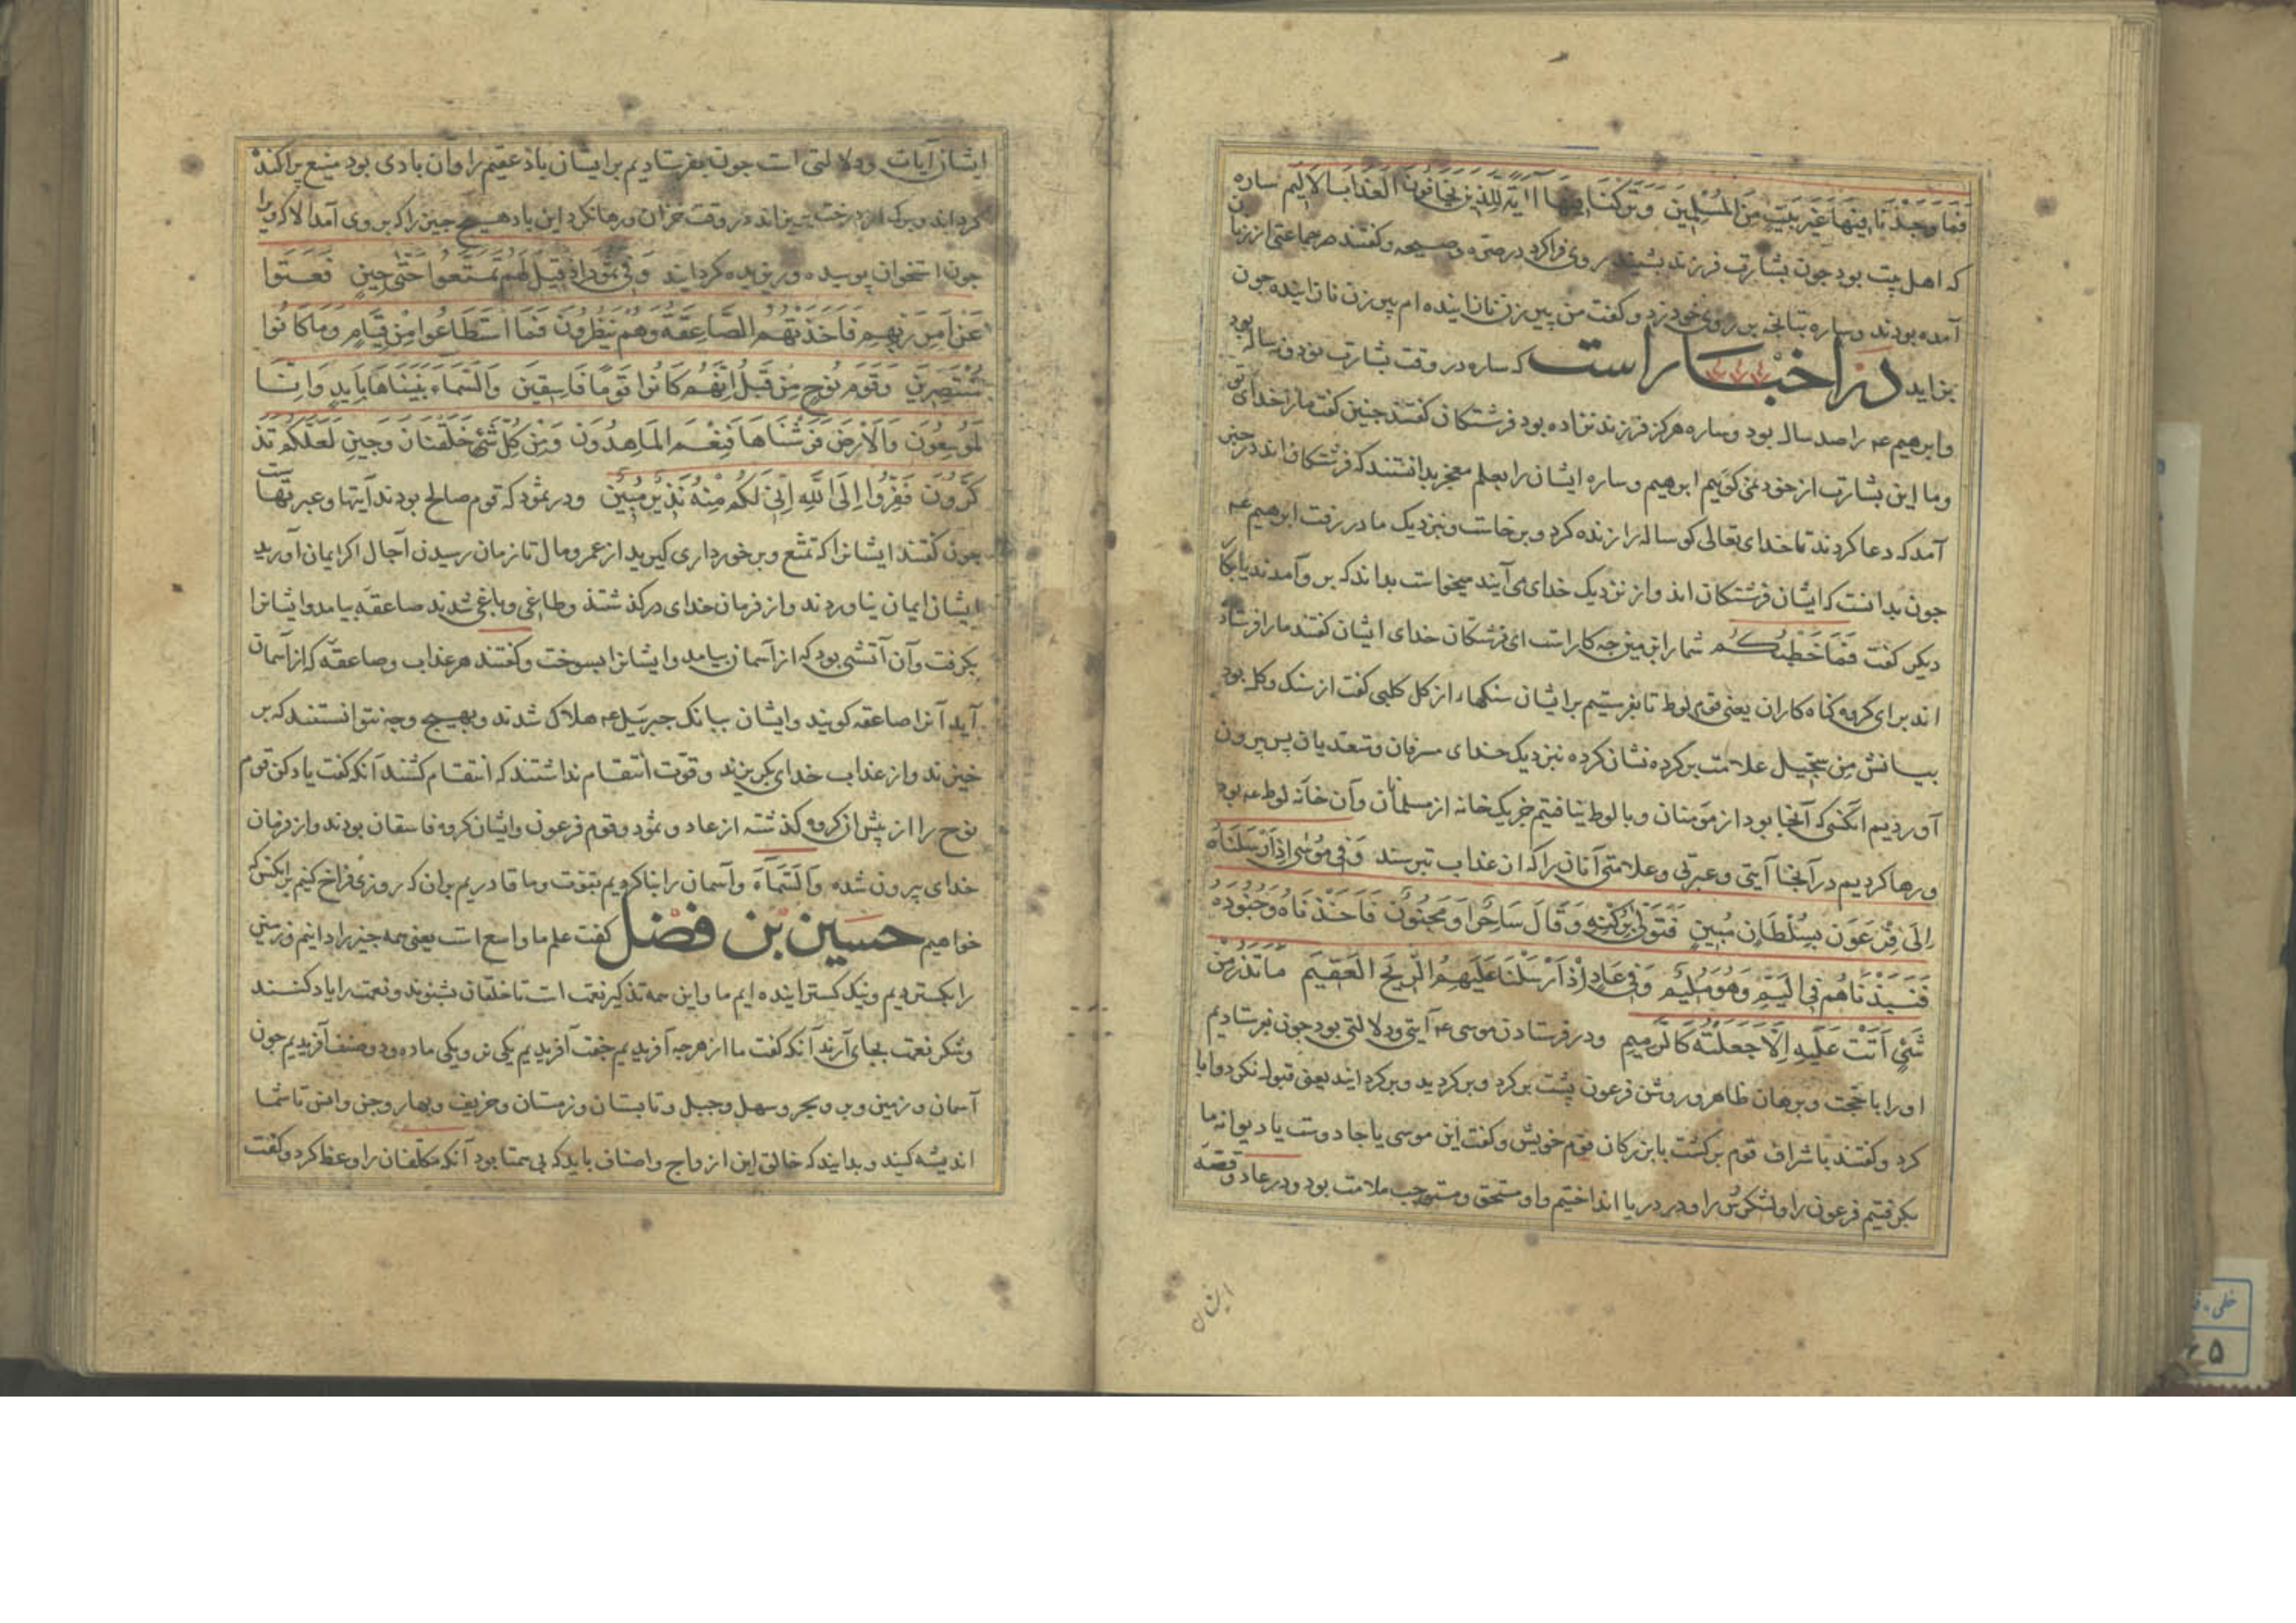 فَمَا وَجَدْنَا فِيهَا غَيْرَ بَيْتٍ مِنَ الْمُسْلِمِينَ وَتَرَكْنَا فِيهَا آيَةً لِلَّذِينَ يَخَافُونَ الْعَذَابَ الْأَلِيمَ ساره
که اهل بیت بود جون بشارت فرزند بشنید روی فراکرد در صرّه و صیحه وکفتند در جماعتی از زنان
آمده بودند وساره تبانجه بر روی خود زد و کفت من پیر زن نازاینده ام پیر زن نازاینده جون
بزاید در اخبار است که ساره در وقت بشارت نود ونه ساله بود
وابرهیم عم را صد ساله بود وساره هرکز فرزند نزاده بود فرشتکان کفتند جنین کفت ما را خدای تو
وما این بشارت از خود نمی کوییم ابرهیم وساره ایشان را بعلم معجز بدانستند که فرشتکان اند در خبر
آمد که دعا کردند تا خدای تعالی کوساله را زنده کرد و برخاست و بنزدیک مادر رفت ابرهیم عم
جون بدانست که ایشان فرشتکان اند واز نزدیک خدای می آیند میخواست بداند که بر وآمدند یا بکار
دیکر کفت فَمَا خَطْبُكُم شما را این جه کار است ای فرشتکان خدای ایشان کفتند ما را فرستاده
اند برای کروه کناه کاران یعنی قوم لوط تا بفرستیم بر ایشان سنکها از کل کلبی کفت از سنک وکل بود
بیانش مِن سِجّیل علامت برکرده نشان کرده نبزدیک خدای مسرفان ومتعدیان پس بیرون
آوردیم آنکس که آنجا بود از مؤمنان وبا لوط نیافتیم جز یک خانه از مسلمانان وآن خانه لوط عم بود
ورها کردیم در آنجا آیتی وعبرتی وعلامتی آنان را که از عذاب ترسند وَفِي مُوسَى إِذْ أَرْسَلْنَاهُ
إِلَى فِرْعَوْنَ بِسُلْطَانٍ مُبِينٍ فَتَوَلَّى بِرُكْنِهِ وَقَالَ سَاحِرٌ أَوْ مَجْنُونٌ فَأَخَذْنَاهُ وَجُنُودَهُ
فَنَبَذْنَاهُمْ فِي الْيَمِّ وَهُوَ مُلِيمٌ وَفِي عَادٍ إِذْ أَرْسَلْنَا عَلَيْهِمُ الرِّيحَ الْعَقِيمَ مَا تَذَرُ مِنْ
شَيْءٍ أَتَتْ عَلَيْهِ إِلَّا جَعَلَتْهُ كَالرَّمِيمِ ودر فرستادن موسی عم آیتی ودلالتی بود جون بفرستادیم
او را با حجّت وبرهان ظاهر وروشن فرعون پشت برکرد وبرکردید وبرکردایند یعنی قبول نکرد وابا
کرد وکفتند باشراف قوم برکشت یا بزرکان قوم خویش وکفت این موسی یا جادوست یا دیوانه ما
بکرفتیم فرعون را ولشکرش را ودر دریا انداختیم واو مستحق ومستوجب ملامت بود ودر عاد وقصّه
ایشان
ایشان آیات ودلالتی است جون بفرستادیم بر ایشان باذ عقیم را وان بادی بود منبع پراکنده
کرداند وبرک از درخت بریزاند در وقت خزان ورها نکرد این باد هیج جیز را که بر وی آمد الا که ویرا
جون استخوان پوسیده وریزیده کردایند وَفِي ثَمُودَ إِذْ قِيلَ لَهُمْ تَمَتَّعُوا حَتَّى حِينٍ فَعَتَوْا
عَنْ أَمْرِ رَبِّهِمْ فَأَخَذَتْهُمُ الصَّاعِقَةُ وَهُمْ يَنْظُرُونَ فَمَا اسْتَطَاعُوا مِنْ قِيَامٍ وَمَا كَانُوا
مُنْتَصِرِينَ وَقَوْمَ نُوحٍ مِنْ قَبْلُ إِنَّهُمْ كَانُوا قَوْمًا فَاسِقِينَ وَالسَّمَاءَ بَنَيْنَاهَا بِأَيْدٍ وَإِنَّا
لَمُوسِعُونَ وَالْأَرْضَ فَرَشْنَاهَا فَنِعْمَ الْمَاهِدُونَ وَمِنْ كُلِّ شَيْءٍ خَلَقْنَا زَوْجَيْنِ لَعَلَّكُمْ تَذَ
كَّرُونَ فَفِرُّوا إِلَى اللَّهِ إِنِّي لَكُمْ مِنْهُ نَذِيرٌ مُبِينٌ ودر ثمود که قوم صالح بودند آیتها وعبرتهاست
جون کفتند ایشانرا که تمتّع وبرخورداری کیرید از عمر ومال تا زمان رسیدن آجال اکر ایمان آورید
ایشان ایمان نیاوردند واز فرمان خدای درکذشتند وطاغی وباغی شدند صاعقه بیامد وایشانرا
بکرفت وآن آتشی بود که از آسمان بیامد وایشانرا بسوخت وکفتند هر عذاب وصاعقه که از آسمان
آید آنرا صاعقه کویند وایشان ببانک جبرئیل عم هلاک شدند وبهیج وجه نتوانستند که بر
خیزند واز عذاب خدای بکریزند وقوّت انتقام نداشتند که انتقام کشند آنکه کفت یاد کن قوم
نوح را از پیش از کروه کذشته از عاد وثمود وقوم فرعون وایشان کروه فاسقان بودند واز فرمان
خدای بیرون شده وَالسَّمَاءَ وآسمان را بنا کردیم بقوّت وما قادریم بران که روزی فراخ کنیم بر انکس که
خواهیم حسین بن فضل کفت علم ما واسع است یعنی همه جیز را دانیم وزمین
را بکستردیم ونیک کستراینده ایم ما واین همه تذکیر نعمت است تا خلقان بشنوند ونعمت را یاد کنند
وشکر نعمت بجای آرند آنکه کفت ما از هرجه آفریدیم جفت آفریدیم یکی نر ویکی ماده ودو صنف آفریدیم جون
آسمان وزمین وبر وبحر وسهل وجبل وتابستان وزمستان وخریف وبهار وجن وانس تا شما
اندیشه کنید وبدانید که خالق این ازواج واصناف باید که بی همتا بود آنکه مکلّفان را وعظ کرد وکفت